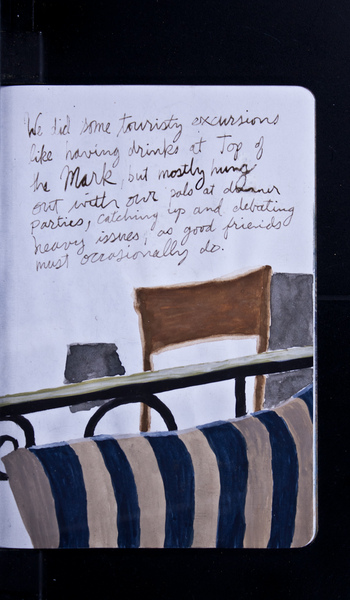 We did some touristy excursions
like having drinks at Top of
the Mark, but mostly hung
out with our pals at dinner
parties, catching up and debating
heavy issues, as good friends
must occasionally do.